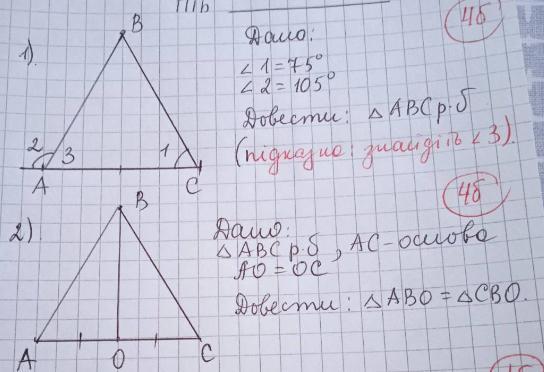 4б
1).
B
2
3
1
A
C
Дано:
∠1=75°
∠2=105°
Довести: △ABC р.б
(підказка: знайдіть ∠3).
4б
2).
B
A
O
C
Дано:
△ABC р.б, AC-основа
AO=OC
Довести: △ABO=△CBO.